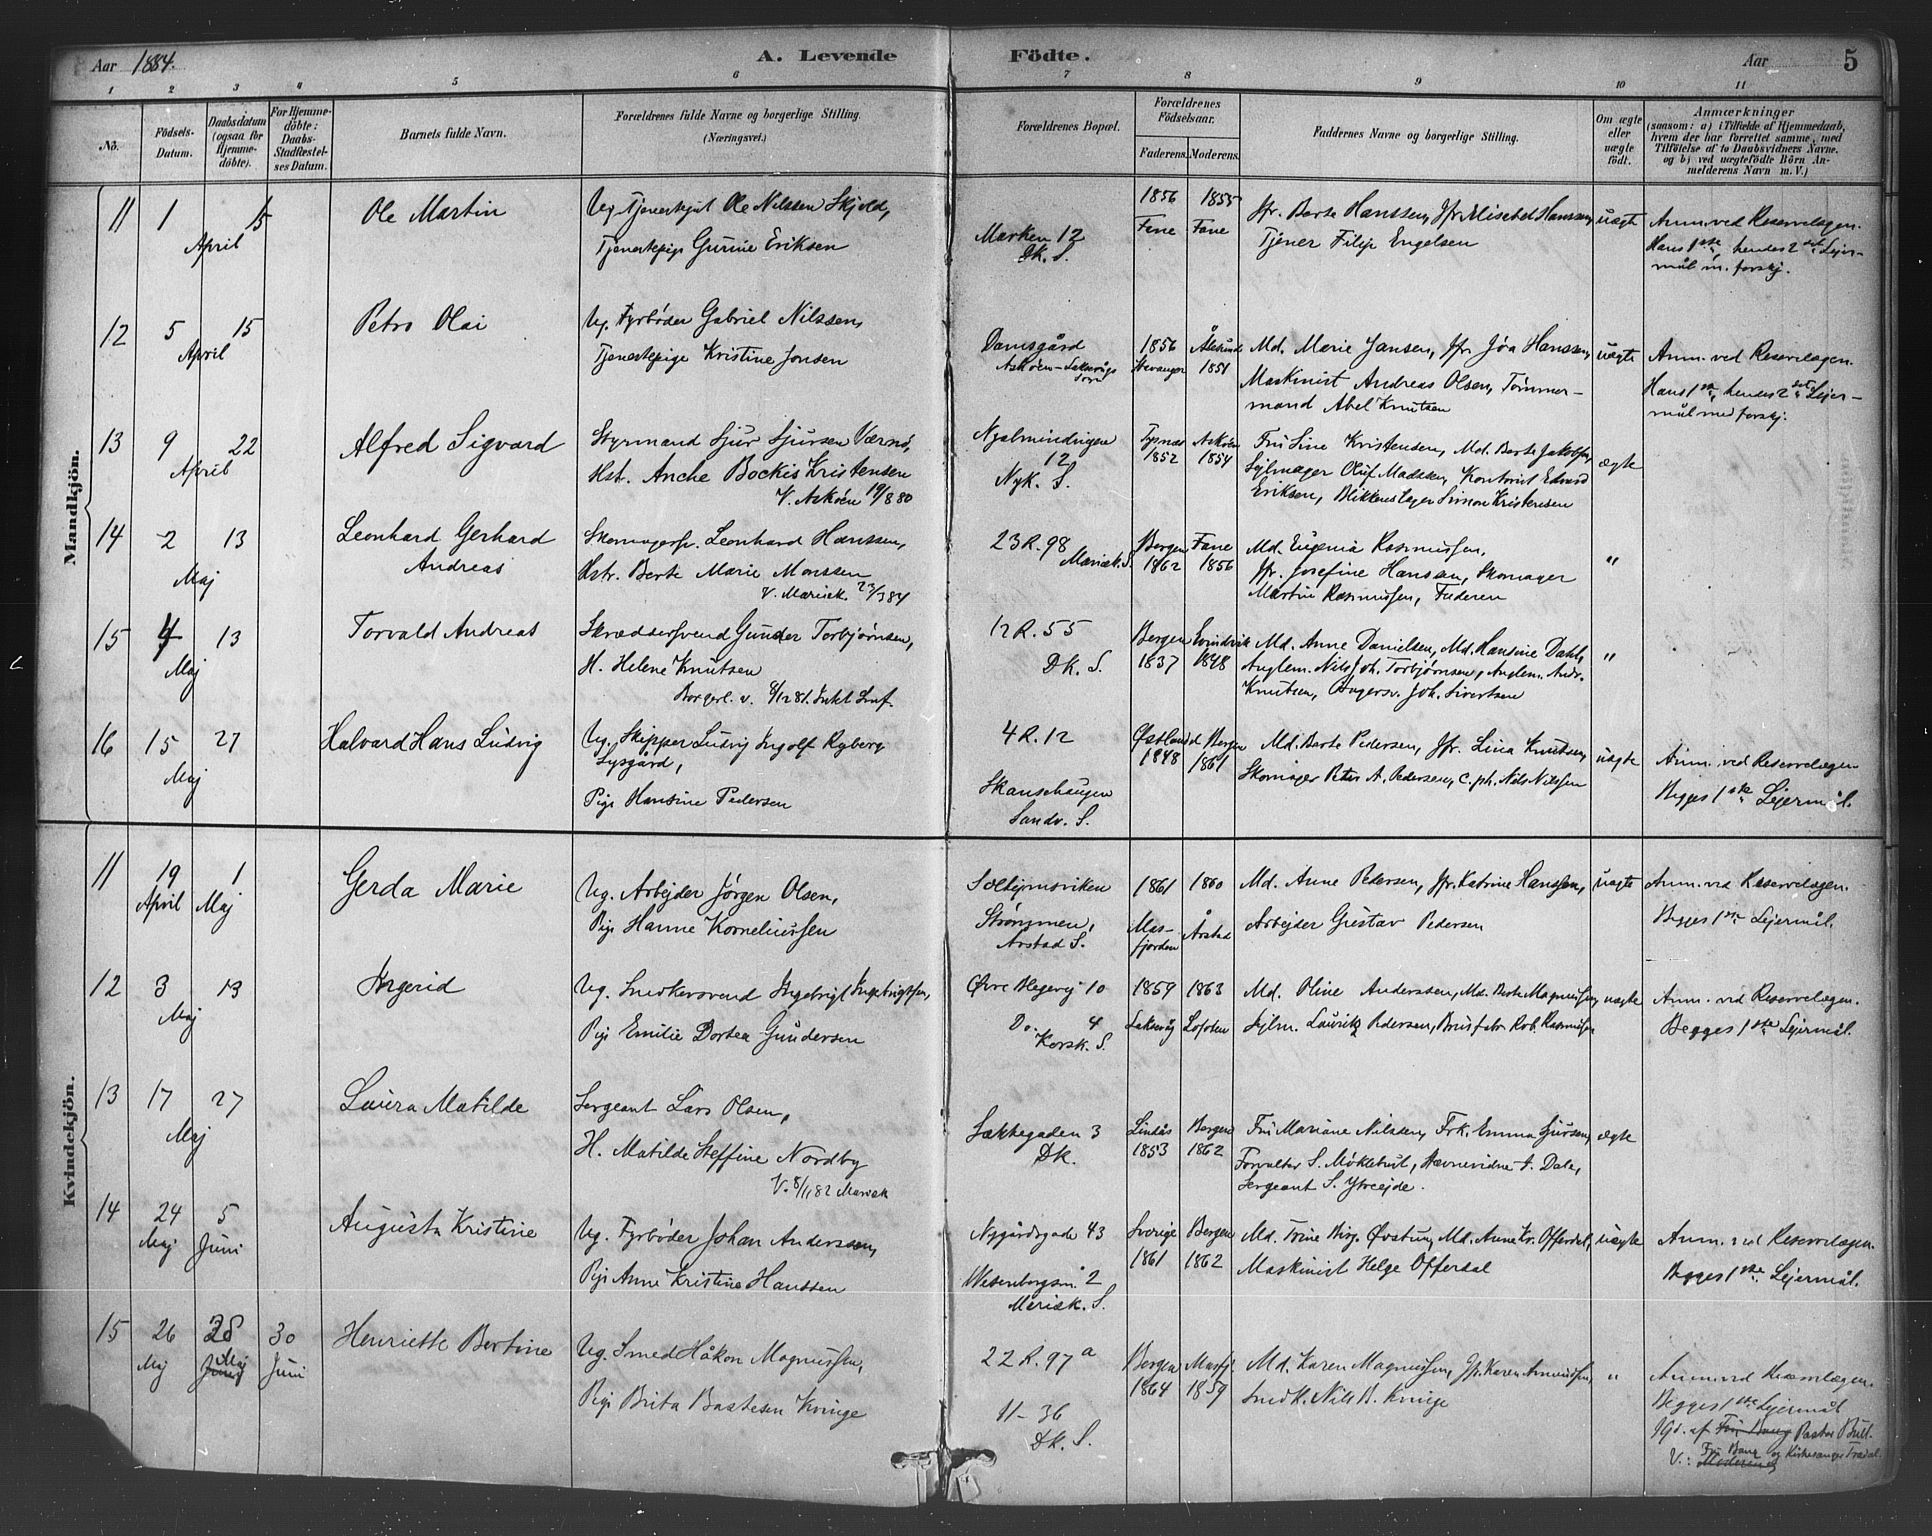 Aar 1884. A. Levende Födte. Aar 5
1 2 3 4 5 6 7 8 9 10 11
No. Födsels-Datum. Daabsdatum (ogsaa for Hjemmedöbte). For Hjemmedöbte: Daabs-Stadfæstelses Datum. Barnets fulde Navn. Forældrenes fulde Navne og borgerlige Stilling. (Næringsvei.) Forældrenes Bopæl. Forældrenes Födselsaar. Faderens. Moderens. Faddernes Navne og borgerlige Stilling. Om ægte eller uægte födt. Anmærkninger (saasom: a) i Tilfælde af Hjemmedaab, hvem der har forrettet samme, med Tilföielse af to Daabsvidners Navne. og b) ved uægtefödte Börn Anmelderens Navn m. V.)
Mandkjön.
11 1 15 April Ole Martin Ug. Tjenestegut Ole Nilssen Skjold,
Tjenestepige Gurine Eriksen
Marken 12 Dk. S.
1856 Fane 1855 Fane
Jfr. Berte Hanssen, Jfr. Misebel Hanssen,
Tjener Filip Engelsen
uægte
Anm. ved Reservelægen.
Hans 1ste, hendes 2det Lejer-
mål m. forskj.
12 5 15 April Petro Olai Ug. Fyrbøder Gabriel Nilssen,
Tjenestepige Kristine Jonsen
Damsgård
Askøen-Laksevågs
1856 Stavanger Ålesund 1851
Md. Marie Jansen, Jfr. Jóa Hanssen,
Maskinist Andreas Olsen, Tømmer-
mand Abel Knutsen
uægte
Anm. ved Reservelægen.
Hans 1ste, hendes 2det Lejer-
mål med forskj.
13 9 22 April Alfred Sigvard Styrmand Sjur Sjursen Værnø,
Hst. Anche Bockis Kristensen
V. Askøen 19/8 80
Nyalmindingen
12
Nyk. S.
Tysnæs 1852 Askøen 1854
Fru Sine Kristensen, Md. Berte Jakobsen,
Sejlmager Oluf Madssen, Kontorist Edvard
Eriksen, Blikkenslager Simon Kristensen
ægte
14 2 13 Maj Leonhard Gerhard
Andreas
Skomagersv. Leonhard Hanssen,
Hstr. Berte Marie Monssen
V. Mariek. 23/3 84
23 R. 98
Mariæk. S.
Bergen 1862 Fane 1856
Md. Eugenia Rasmussen,
Jfr. Josefine Hansen, Skomager
Martin Rasmussen, Faderen
"
15 4 13 Maj Torvald Andreas Skræddersvend Gunder Torbjørnsen,
H. Helene Knutsen
Borgerl. v. 8/12 81.
12 R. 55
Dk. S.
Bergen 1837 Evindvik 1848
Md. Anne Danielsen, Md. Hansine Dahl,
Anglem. Nils Joh. Torbjørnsen, Anglem. Andr.
Knutsen, Joh. Sivertsen
"
16 15 27 Maj Halvard Hans Ludvig Ug. Skipper Ludvig Ingolf Ryberg
Lysgård,
Pige Hansine Pedersen
4 R. 12
Skansehaugen
Sandv. S.
Østland 1848 Bergen 1861
Md. Berte Pedersen, Jfr. Lina Knutsen,
Skomager Peter A. Pedersen, Nils Nilssen
uægte
Anm. ved Reservelægen
Begges 1ste Lejermål.
Kvindekjön.
11 19 April 1 Maj Gerda Marie Ug. Arbejder Jørgen Olsen,
Pige Hanne Korneliussen
Solhejmsviken
Strømmen,
Årstad S.
1861 Masfjorden 1860 Årstad
Md. Anne Pedersen, Jfr. Katrine Hanssen,
Arbejder Gustav Pedersen
uægte
Anm. ved Reservelægen.
Begges 1ste Lejermål.
12 3 13 Maj Ingerid Ug. Snedkersvend Ingebrigt Ingebrigtsen,
Pige Emilie Dortea Gundersen
Øvre Blegevej 10
Do. 4
Korsk. S.
1859 Laksevåg 1863 Lofoten
Md. Oline Anderssen, Md. Berte Magnussen,
Sejlm. Lauritz Pedersen, Rob. Rasmussen
uægte
Anm. ved Reservelægen.
Begges 1ste Lejermål.
13 17 27 Maj Laura Matilde Sergeant Lars Olsen,
H. Matilde Steffine Nordby
V. 8/11 82 Mariæk
Sækkegaden 3
Dk.
Lindås 1853 Bergen 1862
Fru Mariane Nilssen, Frk. Emma Sjursen,
Forvalter S. Møkletust, Stævnevidne J. Dale,
Sergeant S. Ytreejde.
ægte
14 24 Maj 5 Juni Augusta Kristine Ug. Fyrbøder Johan Anderssen,
Pige Anne Kristine Hanssen
Nygårdsgade 43
Wesenbergsm. 2
Mariæk. S.
Sverige 1861 Bergen 1862
Md. Trine Birg. Øvstun, Md. Anne Kr. Offerdal,
Maskinist Helge Offerdal
uægte
Anm. ved Reservelægen.
Begges 1ste Lejermål.
15 26 Maj 28 Maj Juni 30 Juni Henriette Bertine Ug. Smed Håkon Magnussen,
Pige Brita Bastesen Kvinge
22 R. 97 a
11 - 36
Dk. S.
Bergen 1864 Masfj. 1859
Md. Karen Magnussen, Jfr. Karen Amundsen,
Snedk. Nils B. Kvinge
"
Anm. ved Reservelægen.
Begges 1ste Lejermål
Hjd. af Fru Bang Pastor Bull.
V.: Fru Bang og Kirkesanger Tradal.
Moderen